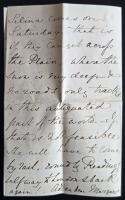 Selina comes on
Saturday – that is
if they can get across
the Plain. Where the
snow is very deep – &
no roads only tracks
in this antiquated
part of the world – if
that is not feasible
she will have to come
by rail, round by Reading
halfway to London & back
again.